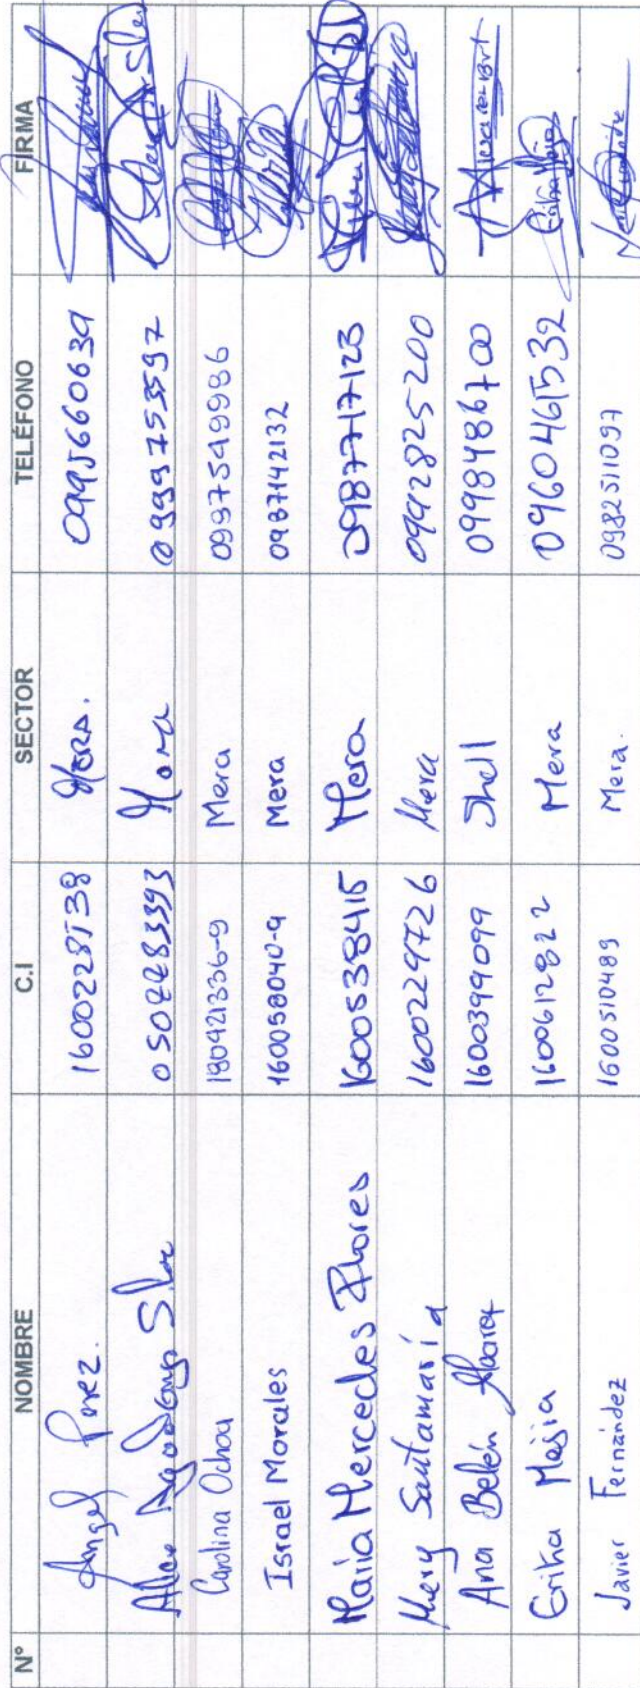 N° NOMBRE C.I SECTOR TELÉFONO FIRMA
Angel Perez. 1600228538 Mera. 0995660639
Silva 0502283393 Mera 0999753597
Carolina Ochoa 180421336-9 Mera 0997549986
Israel Morales 160058040-9 Mera 0987142132
Maria Mercedes Flores 1600538415 Mera 0987717123
Mery Santamaría 1600229726 Mera 0992825200
Ana Belén Alvarez 1600399099 Shell 0998486700
Erika Mejia 1600612822 Mera 0960461532
Javier Fernández 1600510489 Mera. 0982511097